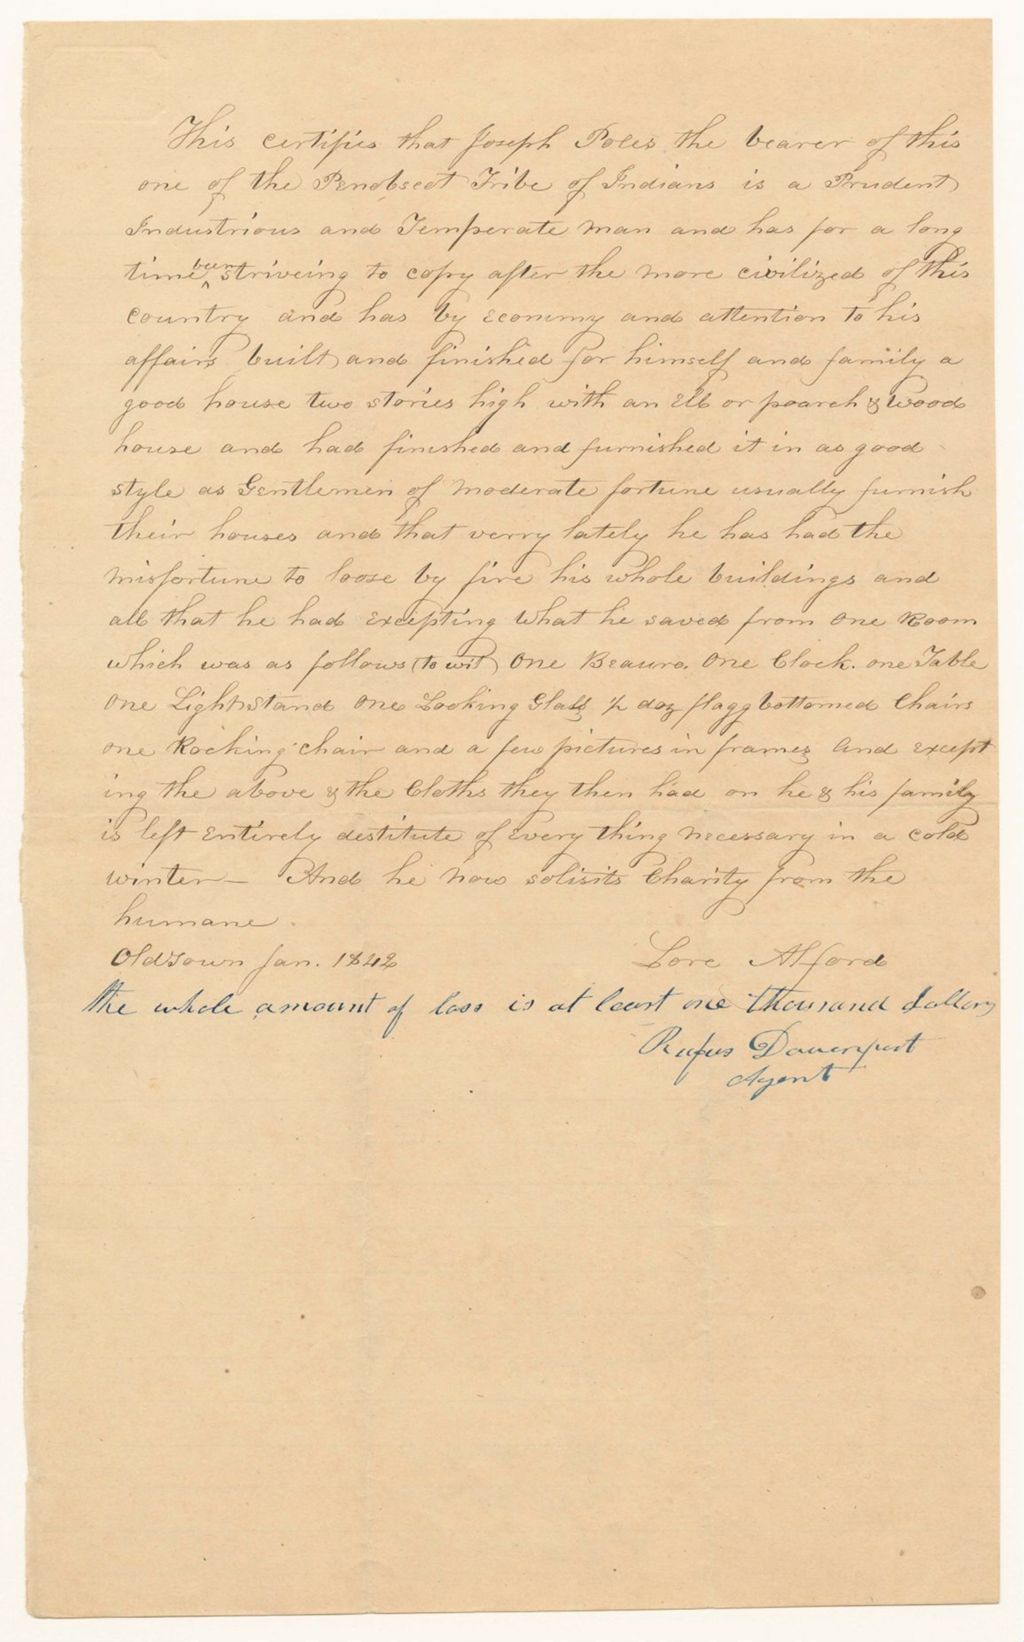 This certifies that Joseph Poles the bearer of this
one of the Penobscot Tribe of Indians is a Prudent
Industrious and Temperate man and has for a long
time been striveing to copy after the more civilized of this
country and has by economy and attention to his
affairs built and finished for himself and family a
good house two stories high with an Ell or poarch & Wood
house and had finished and furnished it in as good
style as Gentlemen of moderate fortune usually furnish
their houses and that verry lately he has had the
misfortune to loose by fire his whole buildings and
all that he had Excepting what he saved from One Room
which was as follows (to wit) One Beauro. One Clock. one Table
One Lightstand One Looking Glass ½ doz flagg bottomed Chairs
one Rocking chair and a few pictures in frames And Except
ing the above & the Cloths they then had on he & his family
is left Entirely destitute of Every thing necessary in a cold
winter — And he now solisits Charity from the
humane.
Oldtown Jan. 1842 Lore Alford
the whole amount of loss is at least one thousand dollars
Rufus Davenport
Agent